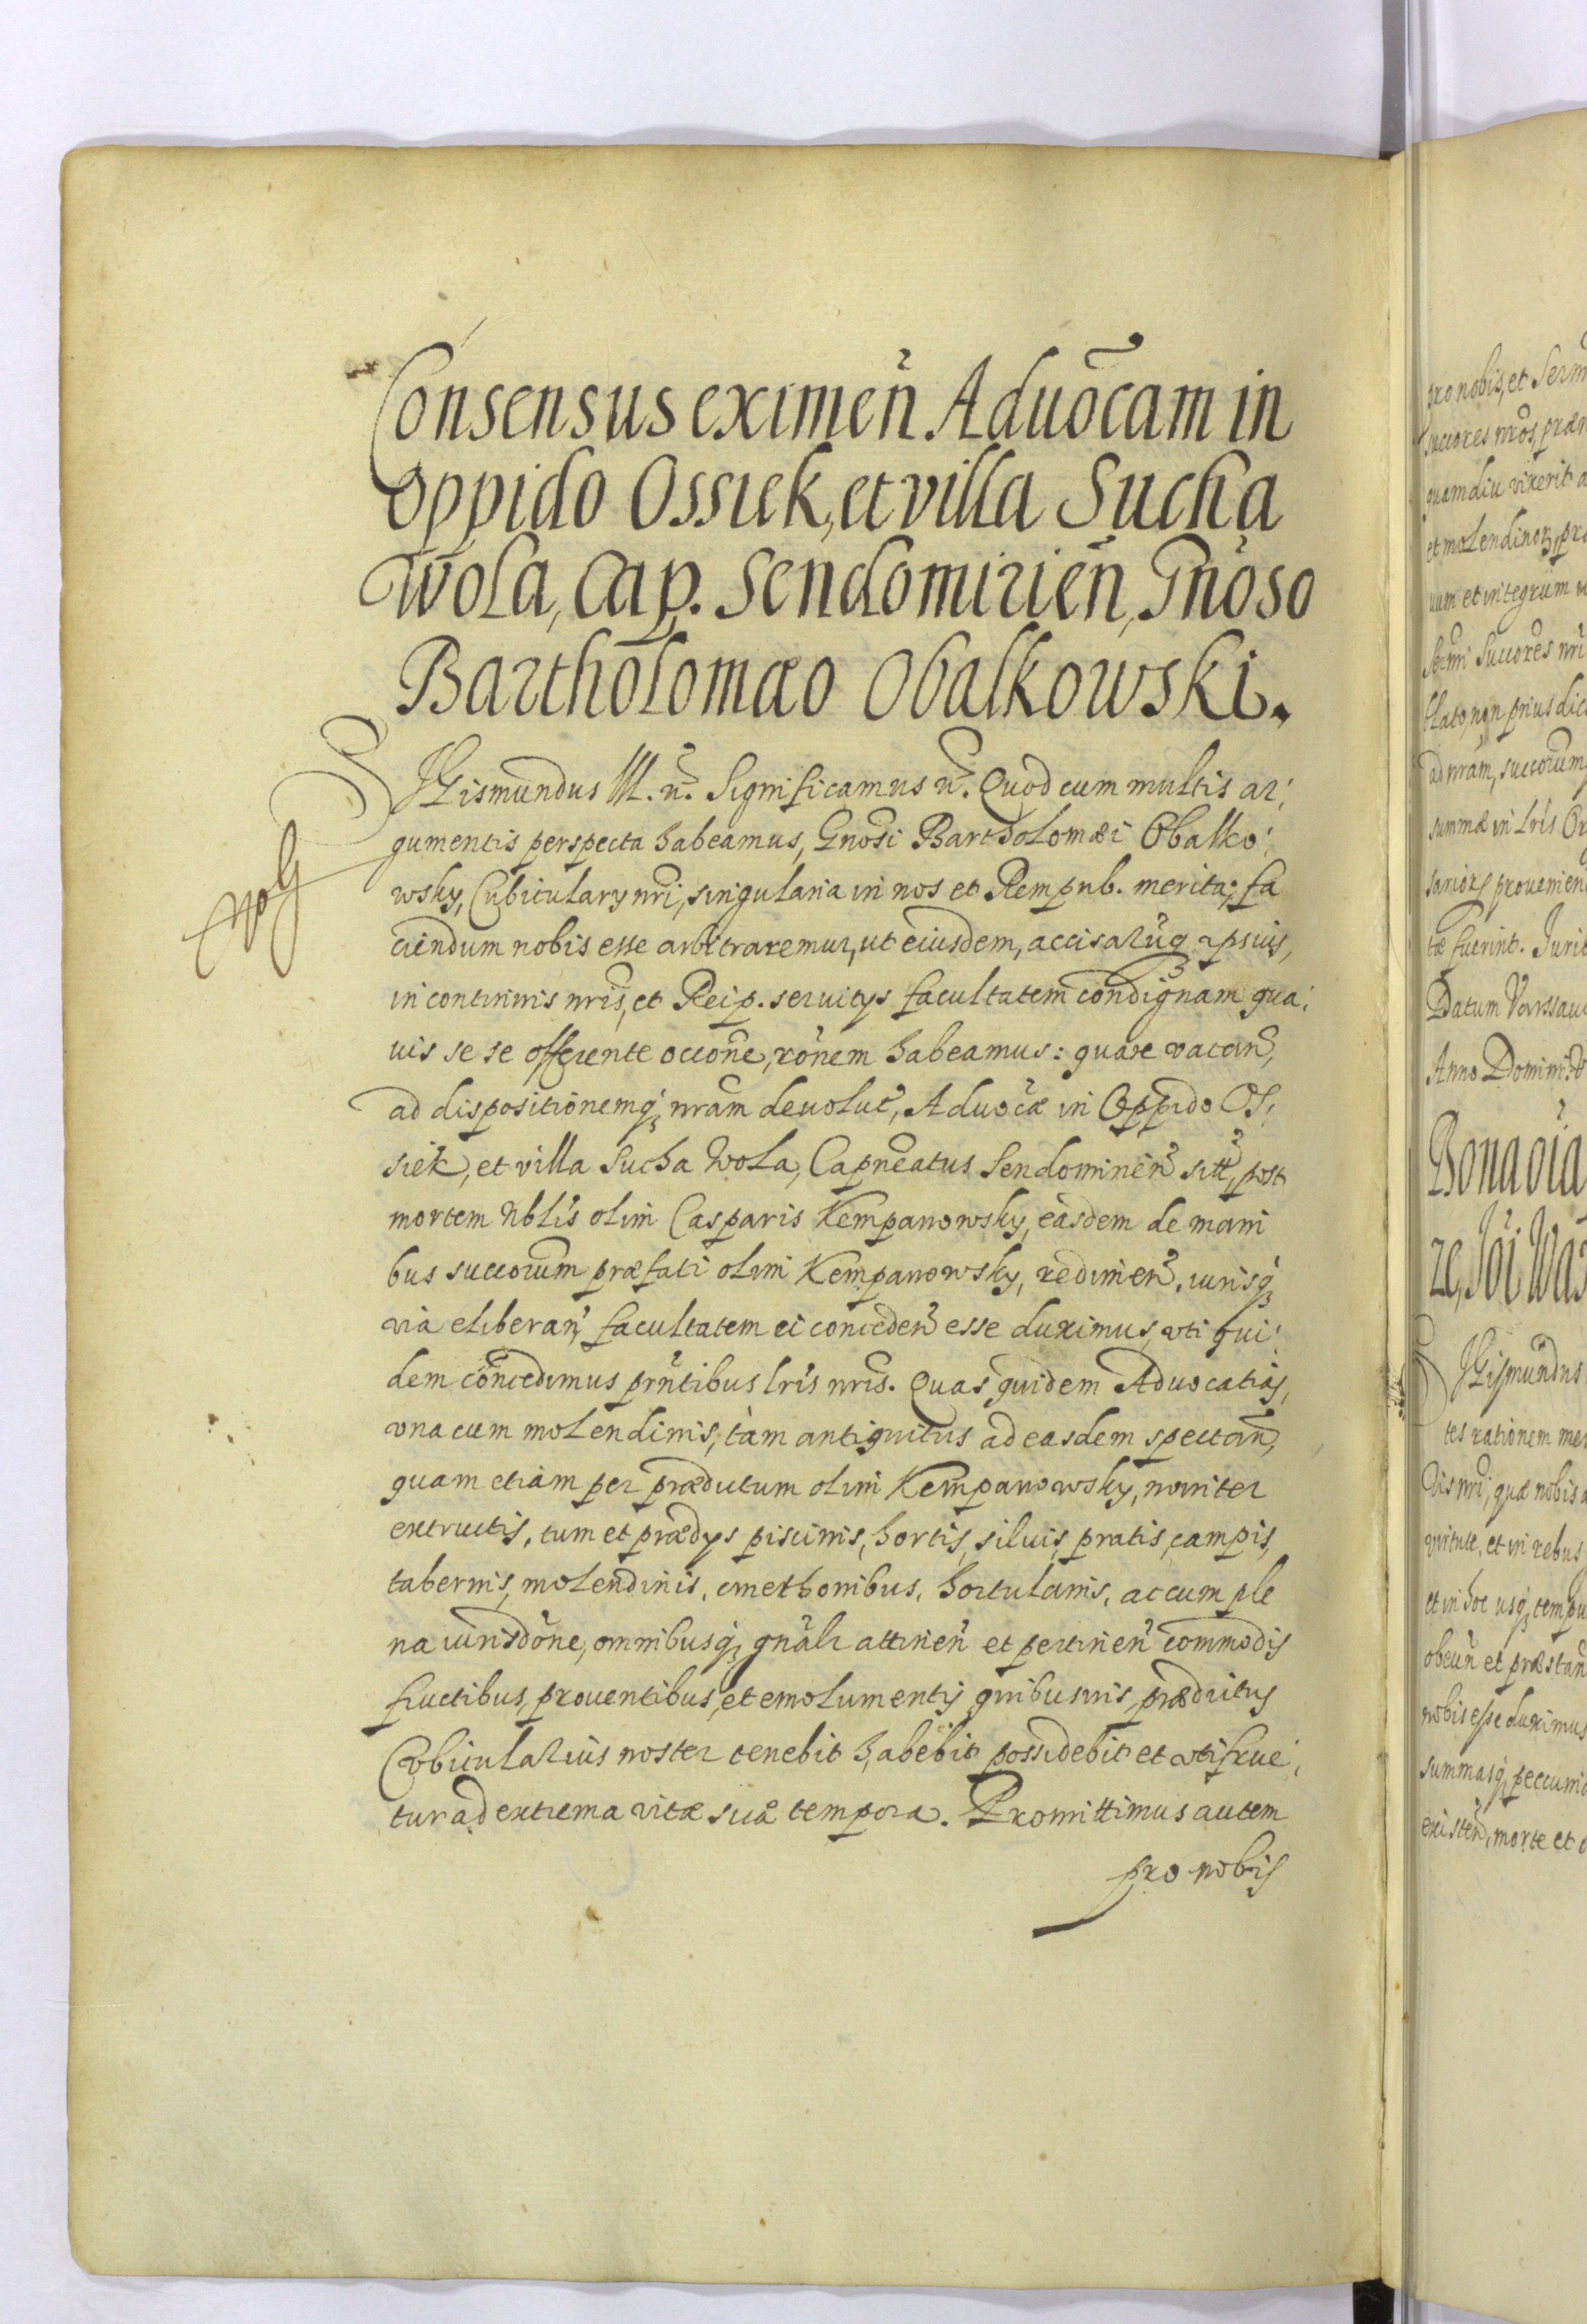 Consensus eximen̄ Aduōcam in
oppido Ossiek, et villa Sucha
Wola, Cap. Sendomirien̄, Gnōso
Bartholomæo Obalkowski.
SIGismundus III. n̄. Significamus n̄. Quod cum multis ar:
gumentis perspecta habeamus, Gnōsi Bartholomæi Obalko:
wsky, Cubicularÿ nri, singularia in nos et Rempub. merita; fa
ciendum nobis esse arbitraremur, ut eiusdem,
in continuis nris, et Reip. seruitÿs facultatem condignam qua:
uis se se offerente occōne, rōnem habeamus: quare vacan̄,
ad dispositionemq; nram deuolut̄, Aduōcæ in Oppido Os:
siek, et villa Sucha Wola, Capneatus Sendomirien̄ sitt̄, post
mortem Nblis olim Casparis Kempanowsky, easdem de mani
bus succorum præfati olim Kempanowsky, redimen̄, iurisq;
via eliberan̄, facultatem ei conceden̄ esse duximus, vti qui:
dem concedimus prntibus lris nris. Quas quidem Aduocatias,
vna cum molendinis, tàm antiquitus ad easdem spectan̄,
quam etiam per prædictum olim Kempanowsky, nouiter
extructis, tum et prædÿs piscinis, hortis, siluis, pratis, campis,
tabernis, molendinis, cmethonibus, hortulanis, ac cum ple
na iurisdōne, omnibusq; gnāli attinen̄ et pertinen̄ commodis
fructibus, prouentibus, et emolumentis quibusuis, prædictus
Cubicularius noster tenebit habebit possidebit et vtifrue:
tur ad extrema vitæ suæ tempora. Promittimus autem
pro nobis
pro nobis, et Serm
succores nros, præ
quamdiu vixerit a
et molendinor, pr
uum et integrum
Sermi Succores nri
blato, non prius dic
ad nram, succorum
summæ in lris Or
prouenien
tæ fuerint. Iurib
Datum Varssaui
Anno Domini
Bona
SIGismundus
tes rationem mer
nri, quæ nobis
virtute, et in rebus
et in hoc usq; tempu
obeun̄ et præstan̄
nobis esse duximus
summasq; pecunia
existen̄, morte et